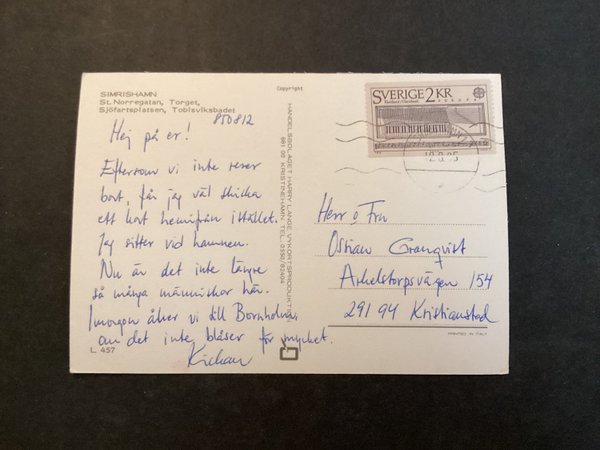 SIMRISHAMN
St. Norregatan, Torget,
Sjöfartsplatsen, Tobisviksbadet
850812
Hej på er!
Eftersom vi inte reser
bort, får jag väl skicka
ett kort hemifrån istället.
Jag sitter vid hamnen.
Nu är det inte längre
så många människor här.
Imorgon åker vi till Bornholm,
om det inte blåser för mycket.
L. 457
Copyright
HANDELSBOLAGET HARRY LANGE VYKORTSPRODUKTION
681 00 KRISTINEHAMN TEL. 0550/82404
SVERIGE 2 KR
EUROPA
12.8.85
Herr o Fru
Östian Granqvist
Arkelstorpsvägen 154
291 94 Kristianstad
PRINTED IN ITALY